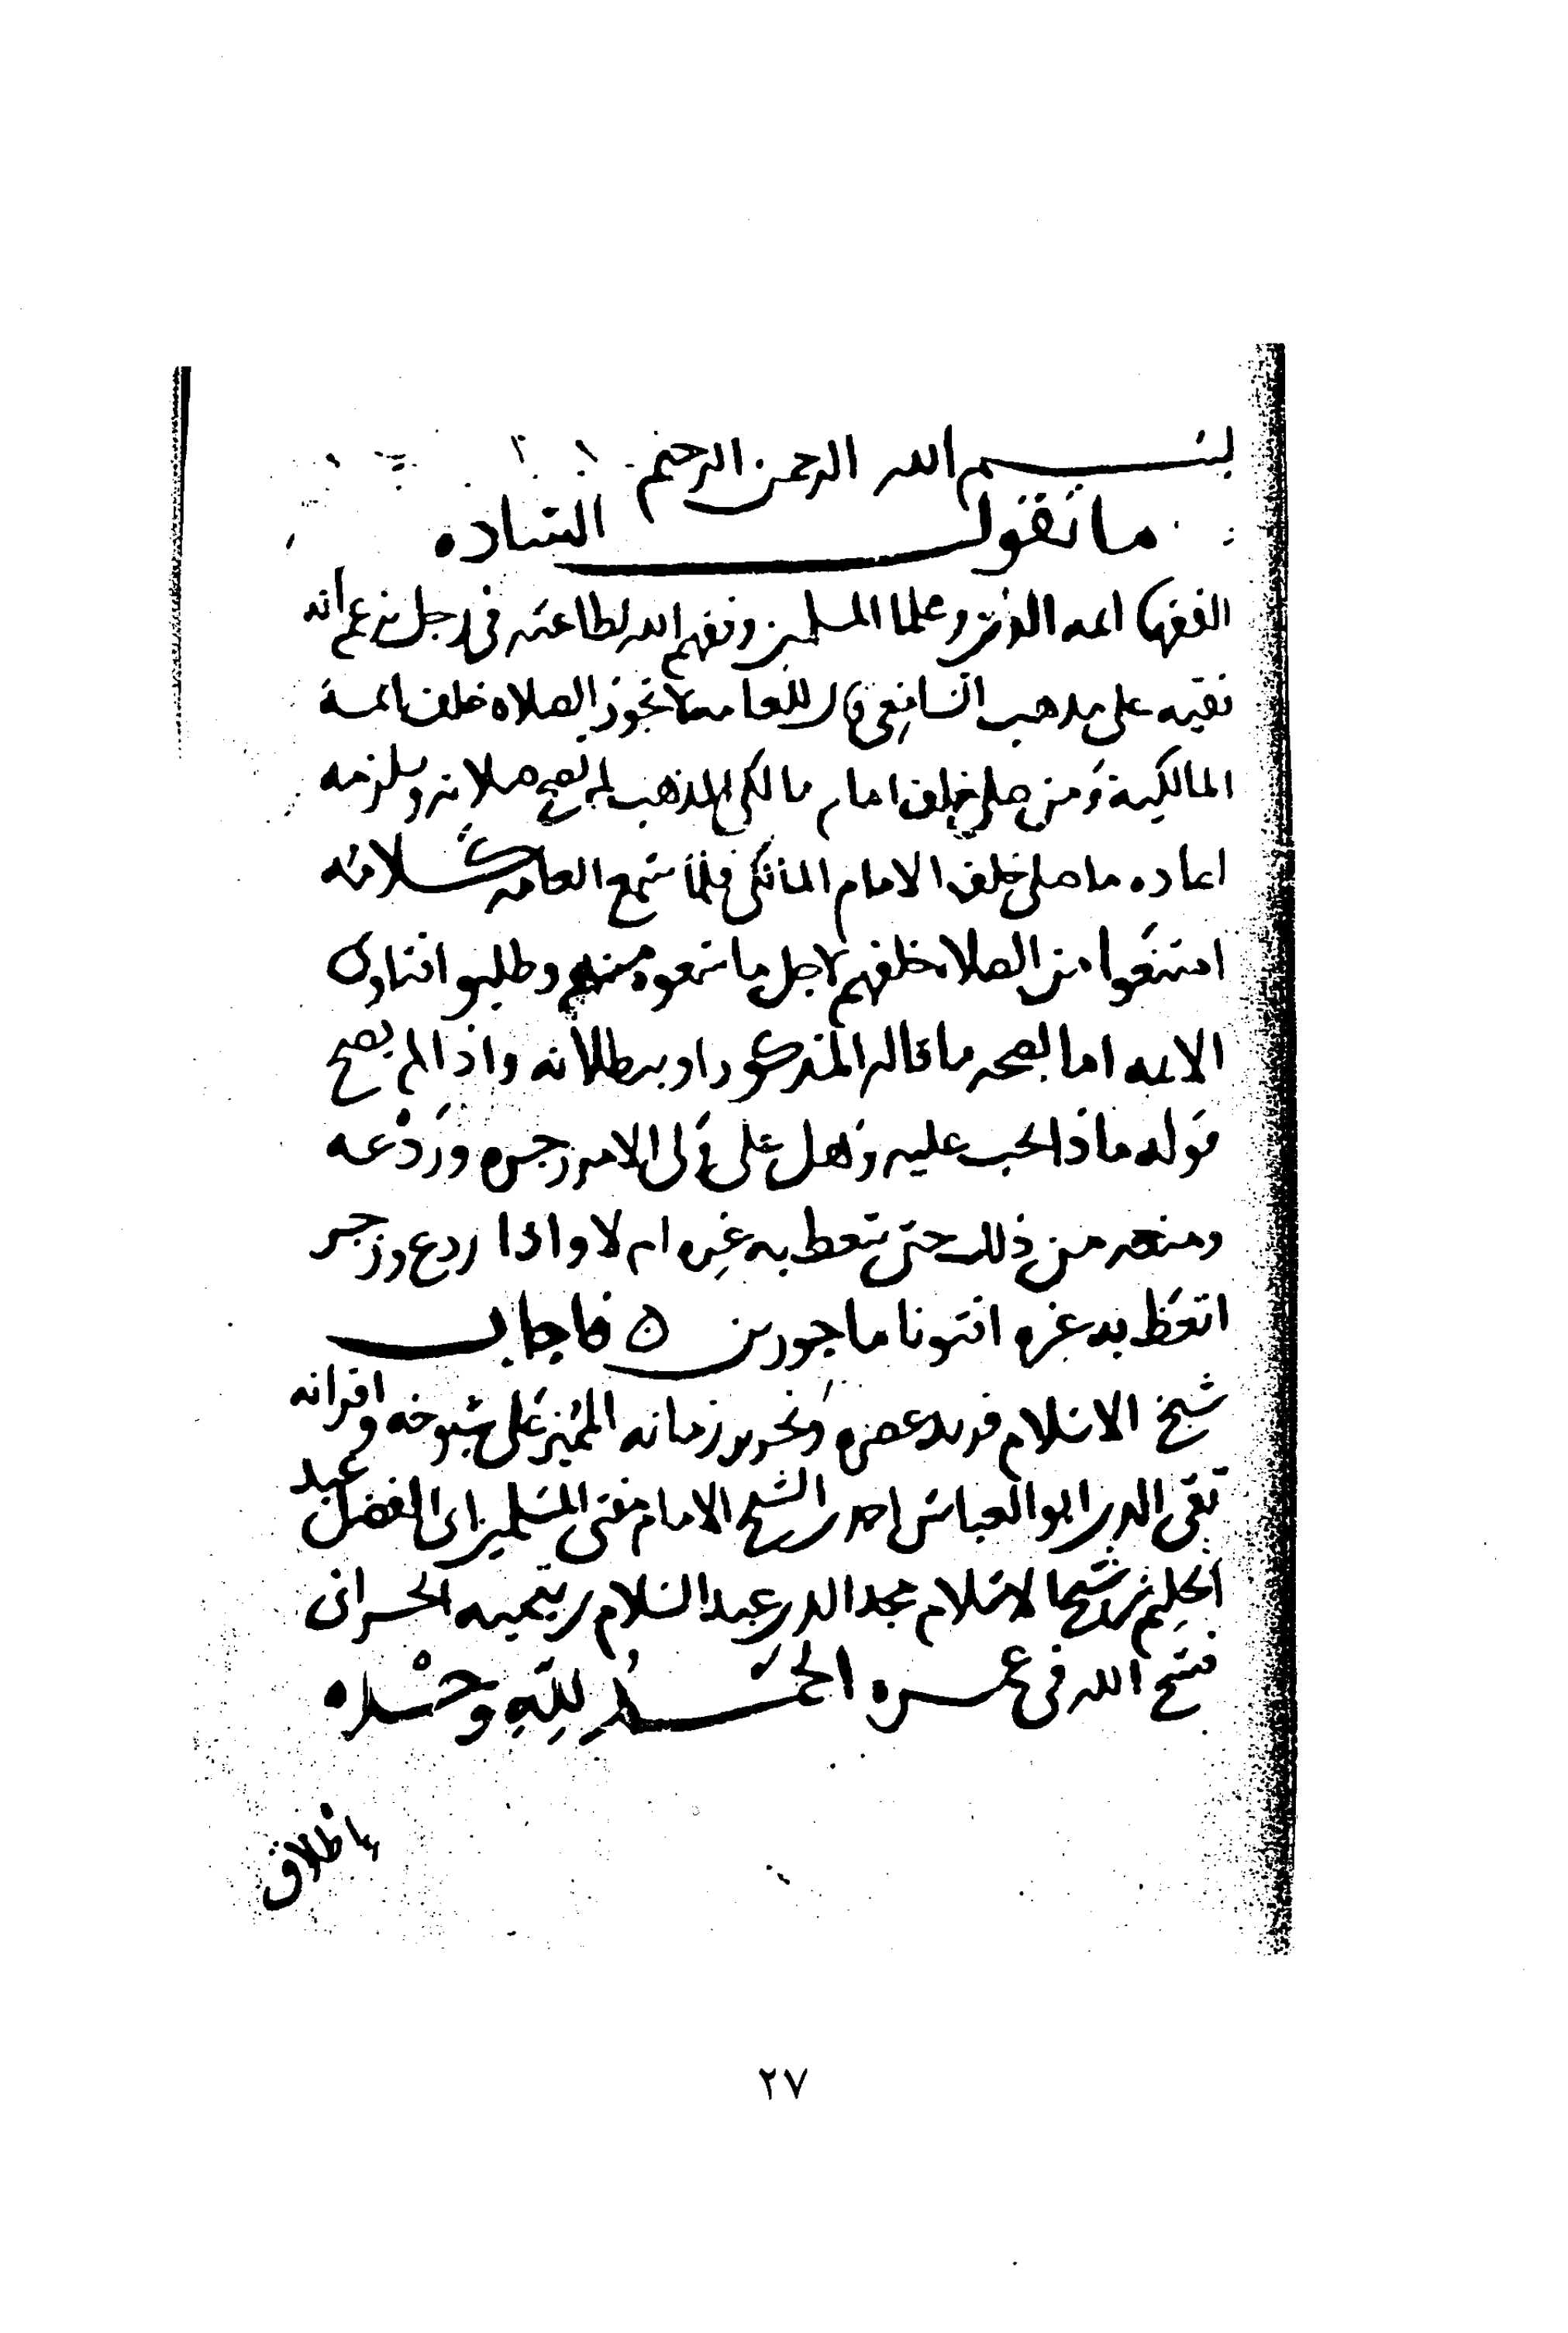 بسم الله الرحمن الرحيم
ما تقول الساده
الفقها ايمه الدين وعلما المسلمين وفقهم الله لطاعته في رجل يزعم انه
فقيه على مذهب الشافعي قال للعامه لا تجوز الصلاه خلف ايمة
المالكية ومن صلى خلف امام مالكي المذهب لم تصح صلاته ويلزمه
اعاده ما صلى خلف الامام المالكي فلما سمع العامه كلامه
امتنعوا من الصلاه خلفهم لاجل ما سمعوه منه وطلبوا فتاوى
الايمه اما بصحه ما قاله المذكور او ببطلانه واذا لم يصح
قوله ماذا يجب عليه وهل على ولي الامر زجره وردعه
ومنعه من ذلك حتى يتعظ به غيره ام لا واذا ردع وزجر
اتعظ به غيره افتونا ماجورين ه فاجاب
شيخ الاسلام فريد عصره ونحرير زمانه المميز على شيوخه واقرانه
تقي الدين ابو العباس احمد بن الشيخ الامام مفتي المسلمين ابي الفضل عبد
الحليم بن شيخ الاسلام مجد الدين عبد السلام بن تيميه الحراني
فسح الله في عمره الحمد لله وحده
باطلاق
٢٧